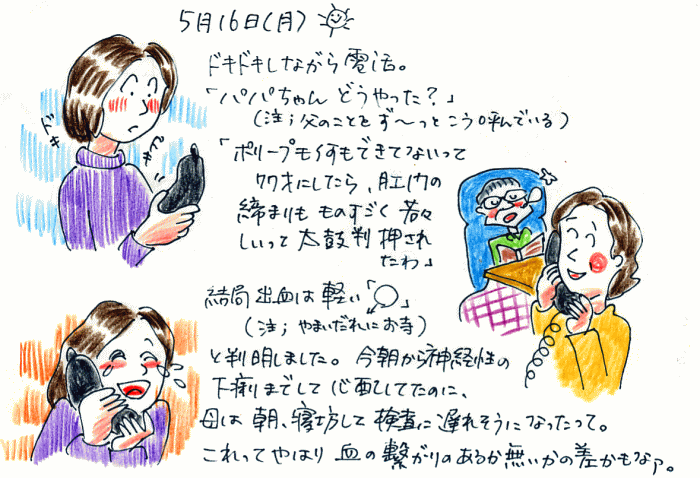 5月16日(月)
ドキドキしながら電話。
「パパちゃん どうやった？」
(注；父のことをず〜っとこう呼んでいる)
ドキ
ドキ
「ポリープも何もできてないって
ワタにしたら、肛門の
締まりも ものすごく 若々
しいって 太鼓判 押され
たわ」
結局 出血は 軽い「◯」
(注；やまいだれに お寺)
と判明しました。今朝から神経性の
下痢までして心配してたのに、
母は 朝、寝坊して 検査に 遅れそうになったって。
これって やはり 血の繋がりのあるか無いかの差かもなァ。